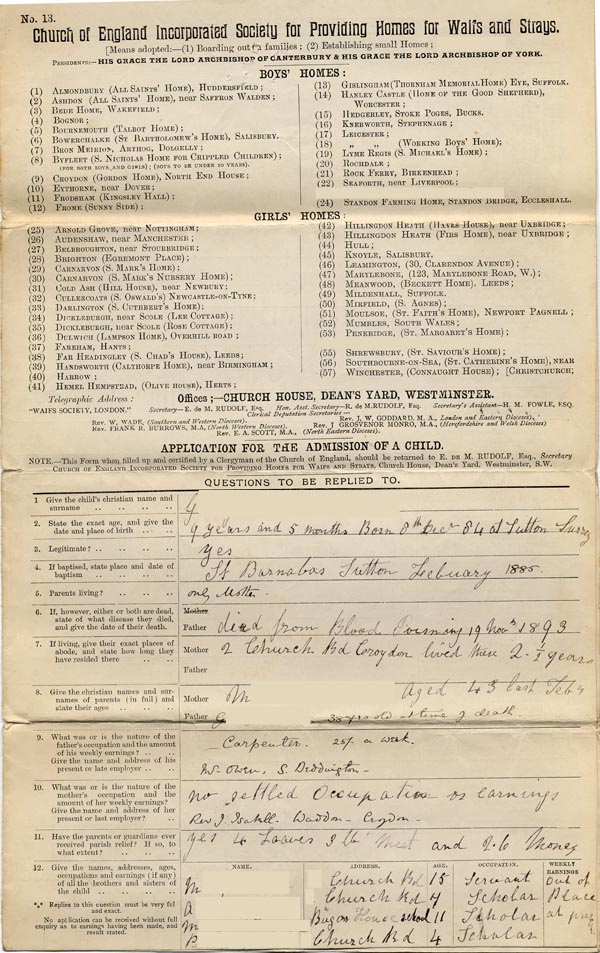 No. 13.
Church of England Incorporated Society for Providing Homes for Waifs and Strays.
[Means adopted:—(1) Boarding out in families; (2) Establishing small Homes;
PRESIDENTS:—HIS GRACE THE LORD ARCHBISHOP OF CANTERBURY & HIS GRACE THE LORD ARCHBISHOP OF YORK.
BOYS' HOMES:
(1) ALMONDBURY (ALL SAINTS' HOME), HUDDERSFIELD;
(2) ASHDON (ALL SAINTS' HOME), near SAFFRON WALDEN;
(3) BEDE HOME, WAKEFIELD;
(4) BOGNOR;
(5) BOURNEMOUTH (TALBOT HOME);
(6) BOWERCHALKE (ST BARTHOLOMEW'S HOME), SALISBURY.
(7) BRON MEIRION, ARTHOG, DOLGELLY;
(8) BYFLEET (S. NICHOLAS HOME FOR CRIPPLED CHILDREN);
(FOR BOTH BOYS AND GIRLS); (BOYS TO BE UNDER 10 YEARS).
(9) CROYDON (GORDON HOME), NORTH END HOUSE;
(10) EYTHORNE, near DOVER;
(11) FRODSHAM (KINGSLEY HALL);
(12) FROME (SUNNY SIDE);
(13) GISLINGHAM (THORNHAM MEMORIAL HOME) EYE, SUFFOLK.
(14) HANLEY CASTLE (HOME OF THE GOOD SHEPHERD),
WORCESTER;
(15) HEDGERLEY, STOKE POGES, BUCKS.
(16) KNEBWORTH, STEPHENAGE;
(17) LEICESTER;
(18) " " (WORKING BOYS' HOME);
(19) LYME REGIS (S. MICHAEL'S HOME);
(20) ROCHDALE;
(21) ROCK FERRY, BIRKENHEAD;
(22) SEAFORTH, near LIVERPOOL;
(24) STANDON FARMING HOME, STANDON BRIDGE, ECCLESHALL.
GIRLS' HOMES:
(25) ARNOLD GROVE, near NOTTINGHAM;
(26) AUDENSHAW, near MANCHESTER;
(27) BELBROUGHTON, near STOURBRIDGE;
(28) BRIGHTON (EGREMONT PLACE);
(29) CARNARVON (S. MARK'S HOME);
(30) CARNARVON (S. MARK'S NURSERY HOME);
(31) COLD ASH (HILL HOUSE), near NEWBURY;
(32) CULLERCOATS (S. OSWALD'S) NEWCASTLE-ON-TYNE;
(33) DARLINGTON (S. CUTHBERT'S HOME);
(34) DICKLEBURGH, near SCOLE (LEE COTTAGE);
(35) DICKLEBURGH, near SCOLE (ROSE COTTAGE);
(36) DULWICH (LAMPSON HOME), OVERHILL ROAD;
(37) FAREHAM, HANTS;
(38) FAR HEADINGLEY (S. CHAD'S HOUSE), LEEDS;
(39) HANDSWORTH (CALTHORPE HOME), near BIRMINGHAM;
(40) HARROW;
(41) HEMEL HEMPSTEAD, (OLIVE HOUSE), HERTS;
(42) HILLINGDON HEATH (HAYES HOUSE), near UXBRIDGE;
(43) HILLINGDON HEATH (FIRS HOME), near UXBRIDGE;
(44) HULL;
(45) KNOYLE, SALISBURY.
(46) LEAMINGTON, (30, CLARENDON AVENUE);
(47) MARYLEBONE, (123, MARYLEBONE ROAD, W.);
(48) MEANWOOD, (BECKETT HOME), LEEDS;
(49) MILDENHALL, SUFFOLK.
(50) MIRFIELD, (S. AGNES);
(51) MOULSOE, (ST. FAITH'S HOME), NEWPORT PAGNELL;
(52) MUMBLES, SOUTH WALES;
(53) PENKRIDGE, (ST. MARGARET'S HOME);
(55) SHREWSBURY, (ST. SAVIOUR'S HOME);
(56) SOUTHBOURNE-ON-SEA, (ST. CATHERINE'S HOME), near
(57) WINCHESTER, (CONNAUGHT HOUSE); [CHRISTCHURCH;
Telegraphic Address:
"WAIFS SOCIETY, LONDON."
Offices:—CHURCH HOUSE, DEAN'S YARD, WESTMINSTER.
Secretary—E. de M. RUDOLF, Esq. Hon. Asst. Secretary—R. de M. RUDOLF, Esq. Secretary's Assistant—H. M. FOWLE, ESQ.
Clerical Deputation Secretaries—
Rev. W. WADE, (Southern and Western Dioceses). Rev. J. W. GODDARD, M. A., London and Eastern Dioceses),
Rev. FRANK R. BURROWS, M.A, (North Western Dioceses). Rev. J GROSVENOR MONRO, M.A., (Herefordshire and Welsh Dioceses).
Rev. E. A. SCOTT, M.A., (North Eastern Dioceses).
APPLICATION FOR THE ADMISSION OF A CHILD.
NOTE.—This Form when filled up and certified by a Clergyman of the Church of England, should be returned to E. DE M. RUDOLF, Esq., Secretary
CHURCH OF ENGLAND INCORPORATED SOCIETY FOR PROVIDING HOMES FOR WAIFS AND STRAYS, Church House, Dean's Yard, Westminster, S.W.
QUESTIONS TO BE REPLIED TO.
1 Give the child's christian name and
surname
G
2. State the exact age, and give the
date and place of birth
9 years and 5 months Born 8th Decr 84 at Sutton Surrey
3. Legitimate?
Yes
4. If baptised, state place and date of
baptism
St Barnabas Sutton Febuary 1885.
5. Parents living?
only Mother
6. If, however, either or both are dead,
state of what disease they died,
and give the date of their death.
Mother
Father died from Blood Poisning 19 Novr 1893
7. If living, give their exact places of
abode, and state how long they
have resided there
Mother 2 Church Rd Croydon lived there 2-½ years
Father
8. Give the christian names and sur-
names of parents (in full) and
state their ages
Mother M Aged 43 last Feby
Father G 38 yrs old at time of death.
9. What was or is the nature of the
father's occupation and the amount
of his weekly earnings?
Give the name and address of his
present or late employer
Carpenter. 25/- a week.
Mr. Owen, S. Deddington
10. What was or is the nature of the
mother's occupation and the
amount of her weekly earnings?
Give the name and address of her
present or last employer?
no settled Occupation or earnings
Rev J. Waddon - Croydon -
11. Have the parents or guardians ever
received parish relief? If so, to
what extent?
yes 4 Loaves 3 lb Meat and 2.6 Money
12. Give the names, addresses, ages,
occupations and earnings (if any)
of all the brothers and sisters
of the child
*** Replies to this question must be very full
and exact.
No application can be received without full
enquiry as to earnings having been made, and
result stated.
NAME. ADDRESS. AGE. OCCUPATION. WEEKLY EARNINGS
M Church Rd 15 Servant Out of Place
A Church Rd 7 Scholar at
M School 11 Scholar
B Church Rd 4 Scholar